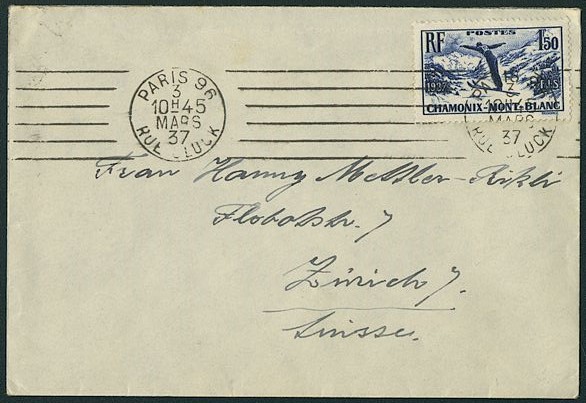 POSTES
RF 1f50
CHAMONIX-MONT-BLANC
PARIS 96
3
10H45
MARS
37
RUE GLUCK
MARS
37
RUE GLUCK
Frau Hanny Mettler-Rikli
7
Zürich 7.
Suisse.